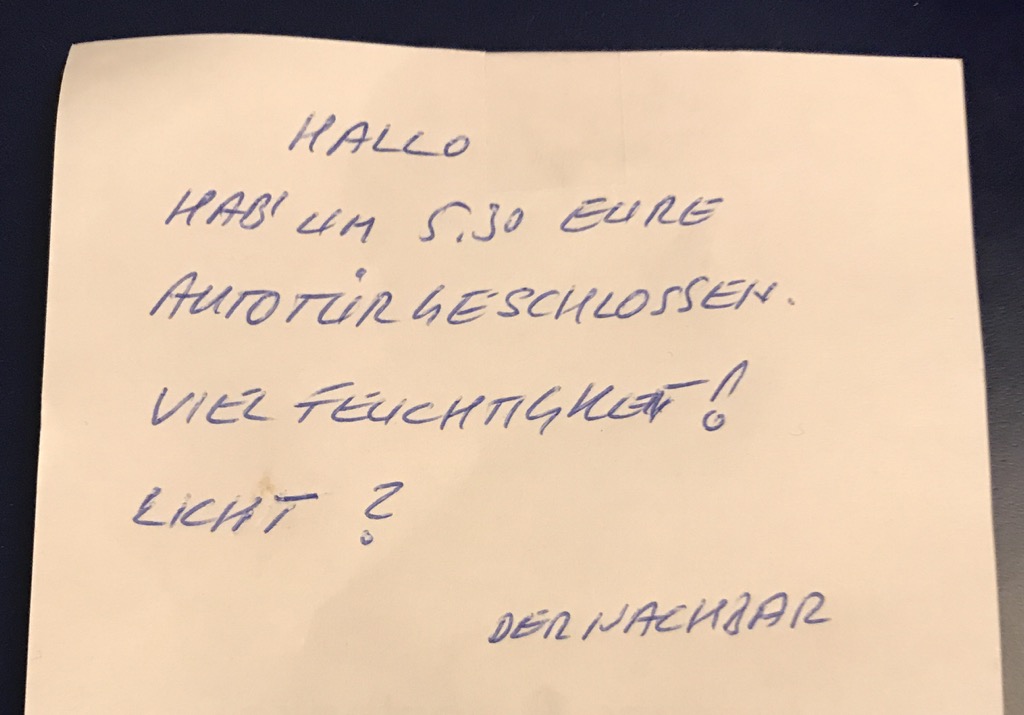 HALLO
HAB' UM 5.30 EURE
AUTOTÜR GESCHLOSSEN.
VIEL FEUCHTIGKEIT!
LICHT ?
DER NACHBAR